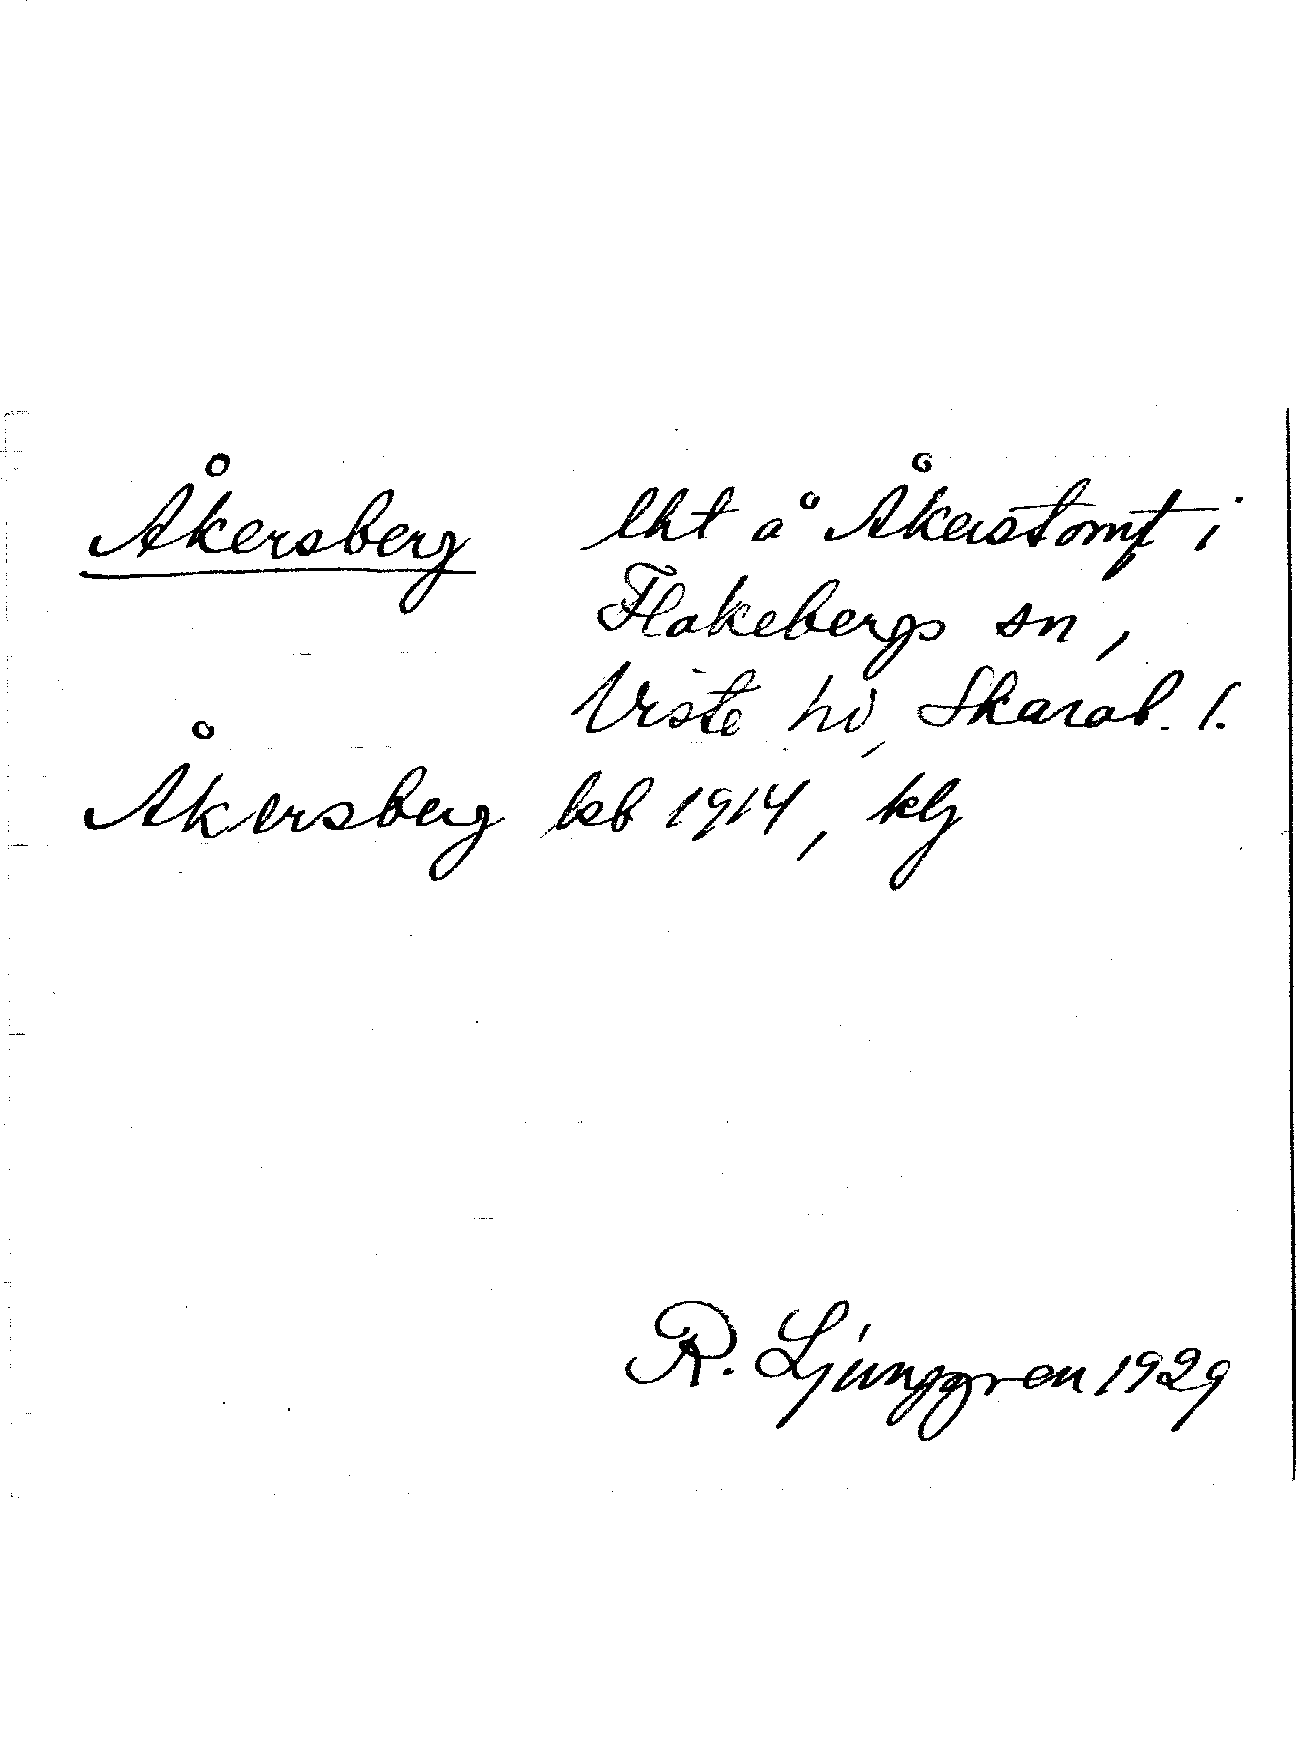 Åkersberg lht å Åkerstomt i
Flakebergs sn,
Viste hd, Skarab. l.
Åkersberg ksb 1914, klj
R. Ljunggren 1929